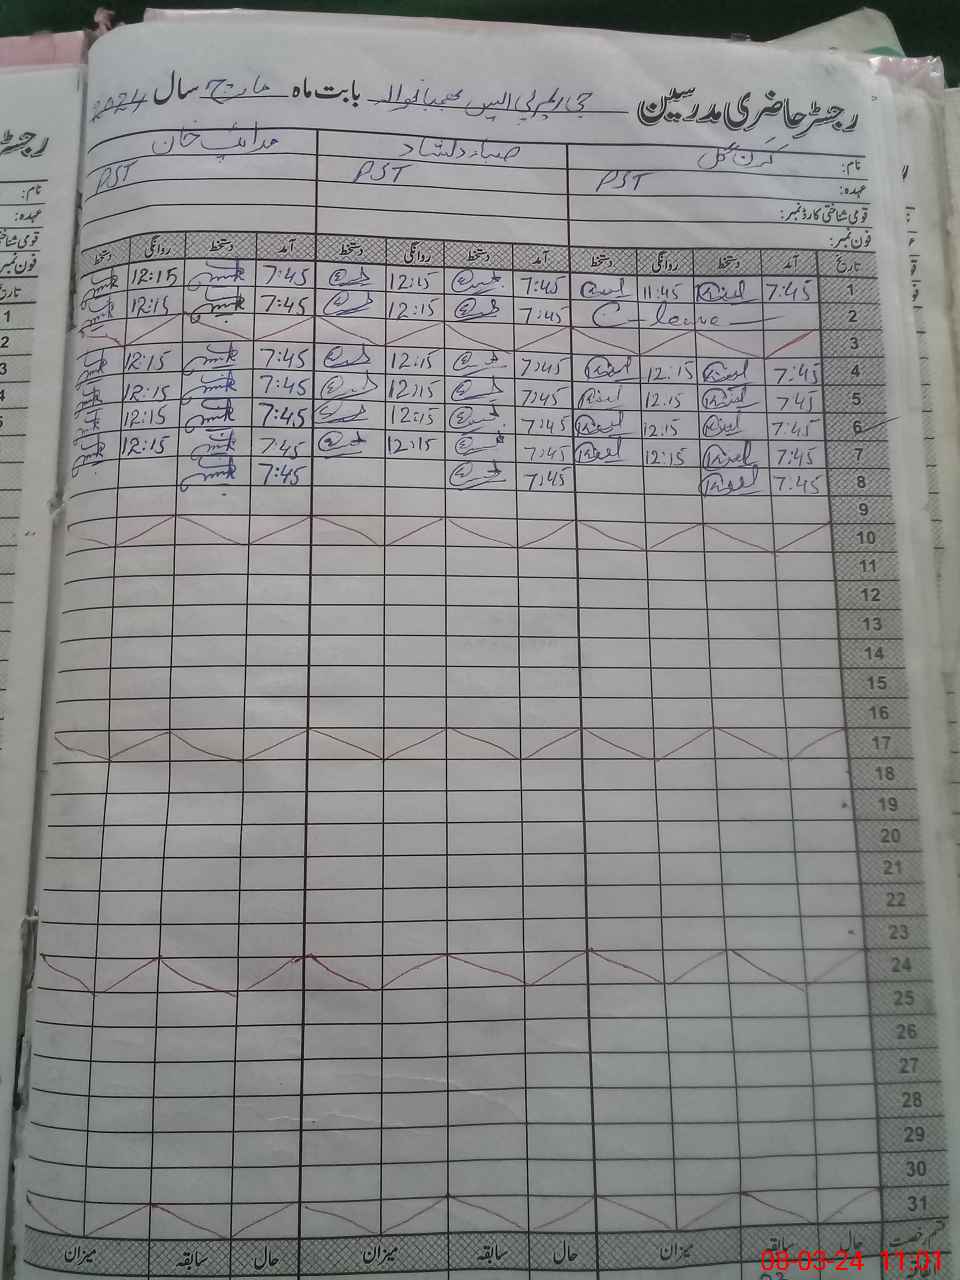 رجسٹر حاضری مدرسین جی ایم پی ایس بھمبانوالہ بابت ماہ مارچ سال 2024
نام: کرن گل صباء دلشاد خان
عہدہ: PST PST PST
قومی شناختی کارڈ نمبر:
فون نمبر:
تاریخ آمد دستخط روانگی دستخط آمد دستخط روانگی دستخط آمد دستخط روانگی دستخط
1 7:45 11:45 7:45 12:15 7:45 12:15
2 C-leave 7:45 12:15 7:45 12:15
3
4 7:45 12:15 7:45 12:15 7:45 12:15
5 7:45 12:15 7:45 12:15 7:45 12:15
6 7:45 12:15 7:45 12:15 7:45 12:15
7 7:45 12:15 7:45 12:15 7:45 12:15
8 7:45 7:45 7:45
9
10
11
12
13
14
15
16
17
18
19
20
21
22
23
24
25
26
27
28
29
30
31
قسم رخصت حال سابقہ میزان حال سابقہ میزان حال سابقہ میزان
08-03-24 11:01
رجسٹر
نام:
عہدہ:
قومی شناختی
فون نمبر
تاریخ
1
2
3
4
5